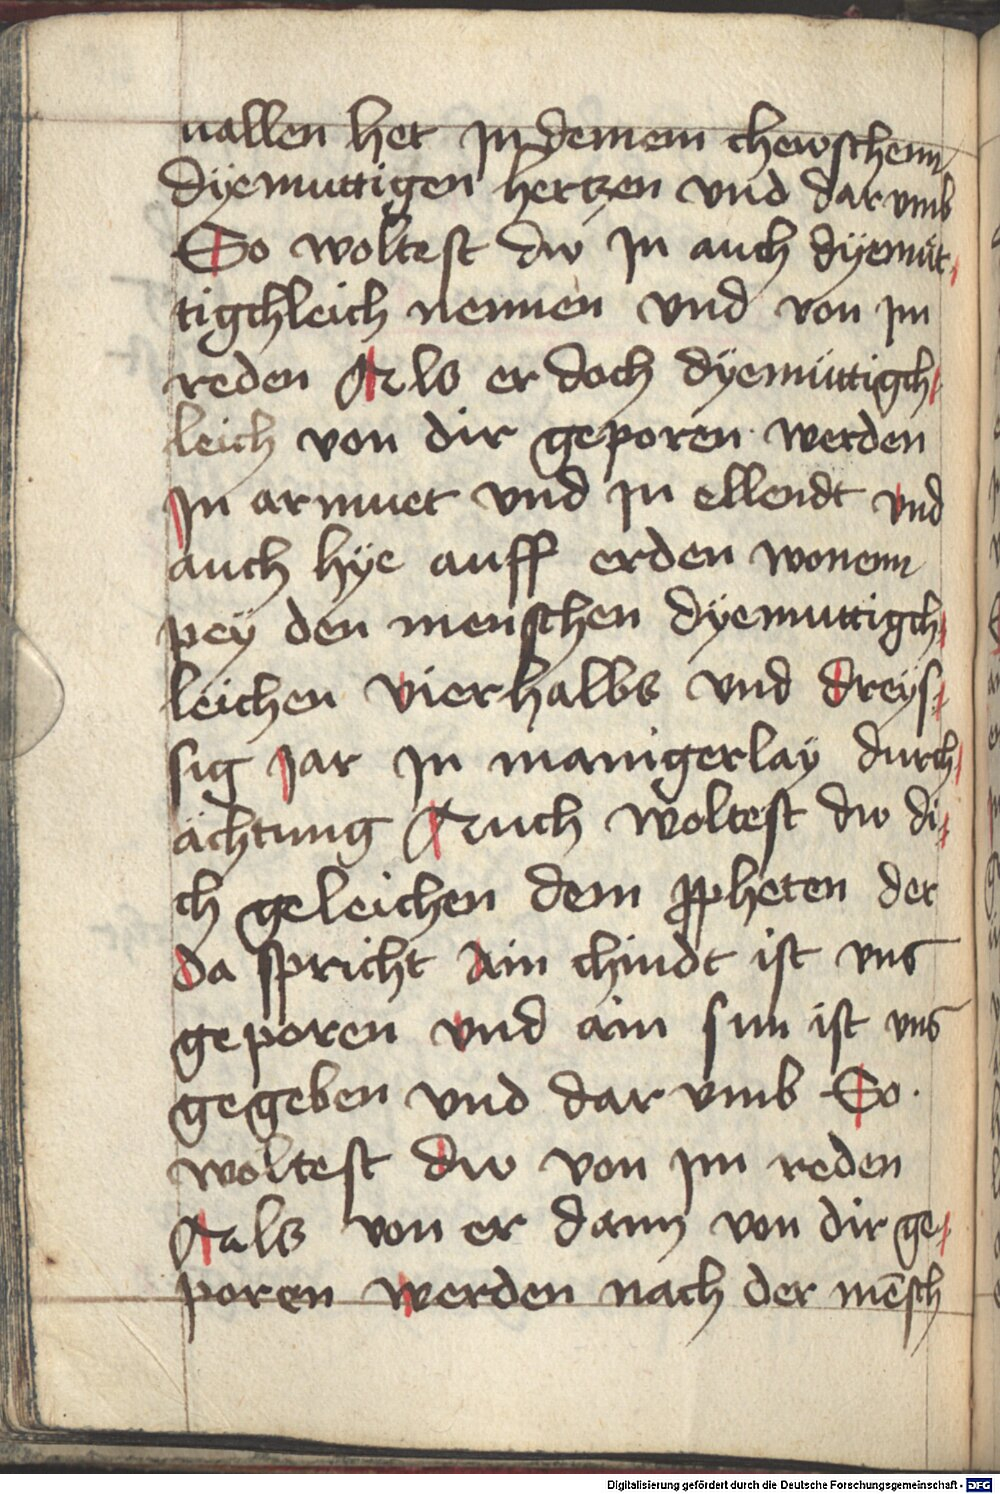 uallen het jn deinem chewschenn
dÿemuttigen hertzen vnd dar vmb
So woltest dw jn auch dÿemüt
tigchleich nennen vnd von jm
reden Als er doch dÿemüttigch
leich von dir geporen werden
jn armuet vnd jn ellendt vnd
auch hÿe auff erden wonenn
peÿ den menschen dÿemuttigch
leichen vierhalbs vnd dreÿs
sig jar jn manigerlaÿ durch
ächtung Auch woltest dw di
ch geleichen dem ꝓpheten der
da spricht Ain chindt ist vns
geporen vnd ain sun ist vns
gegeben vnd dar vmb So
woltest dw von jm reden
Als von er dann von dir ge
poren werden nach der mēsch
Digitalisierung gefördert durch die Deutsche Forschungsgemeinschaft - DFG